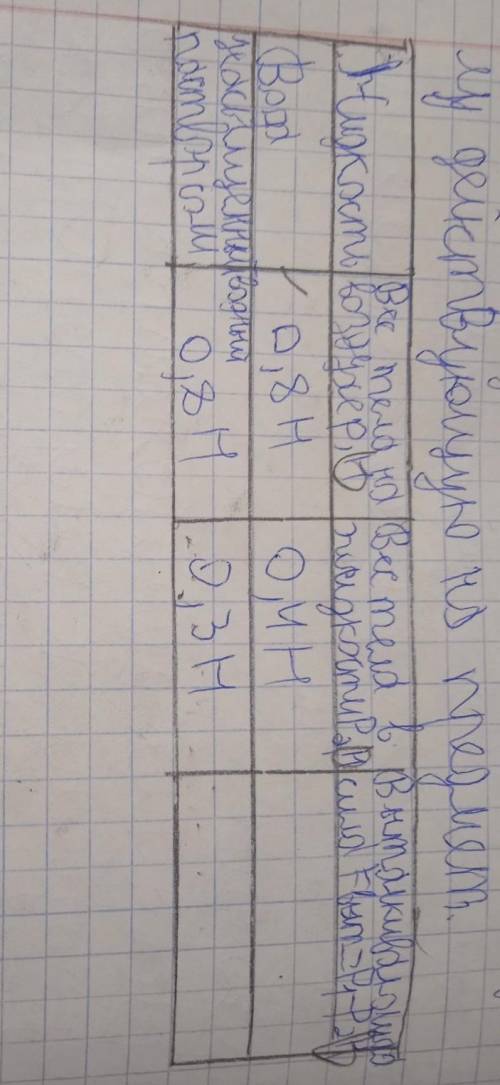 му действующую на предмет.
Жидкость
Вес тела на
воздухе P₁, H
Вес тела в
жидкости P₂, H
Выталкивающая
сила Fвыт=P₁-P₂, H
Вода
0,8 H
0,4 H
насыщенный водный
раствор соли
0,8 H
0,3 H